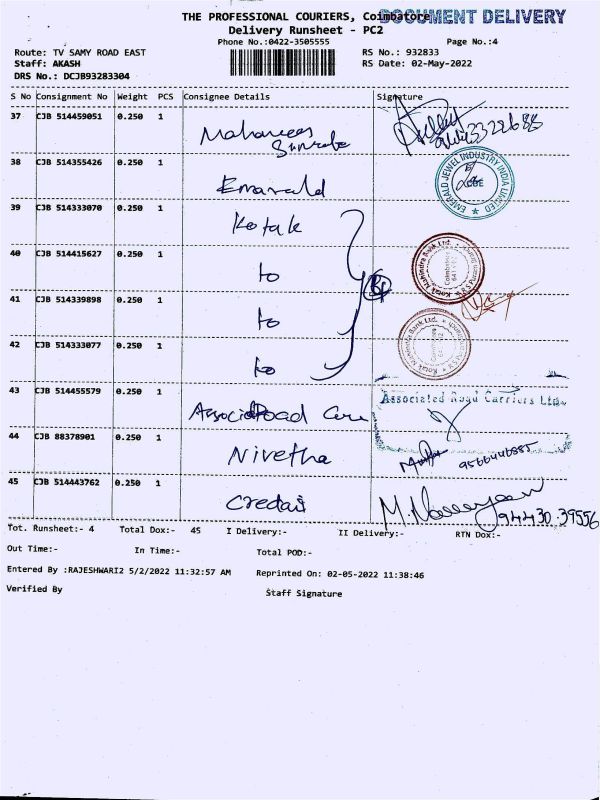 THE PROFESSIONAL COURIERS, Coimbatore
DOCUMENT DELIVERY
Delivery Runsheet - PC2
Phone No.:0422-3505555
Page No.:4
Route: TV SAMY ROAD EAST
RS No.: 932833
Staff: AKASH
RS Date: 02-May-2022
DRS No.: DCJB93283304
S No Consignment No Weight PCS Consignee Details Signature
37 CJB 514459051 0.250 1
38 CJB 514355426 0.250 1 Emerald
EMERALD JEWEL INDUSTRY INDIA LIMITED
CBE
39 CJB 514333070 0.250 1 Kotak
40 CJB 514415627 0.250 1 to
Kotak Mahindra Bank Ltd.
Coimbatore
41 CJB 514339898 0.250 1 to
42 CJB 514333077 0.250 1 to
Kotak Mahindra Bank Ltd.
43 CJB 514455579 0.250 1 Road
Associated Road Carriers Ltd.
44 CJB 88378901 0.250 1 Nivetha
9566446885
45 CJB 514443762 0.250 1 Credai
94430.39556
Tot. Runsheet:- 4 Total Dox:- 45 I Delivery:- II Delivery:- RTN Dox:-
Out Time:- In Time:- Total POD:-
Entered By :RAJESHWARI2 5/2/2022 11:32:57 AM Reprinted On: 02-05-2022 11:38:46
Verified By Staff Signature